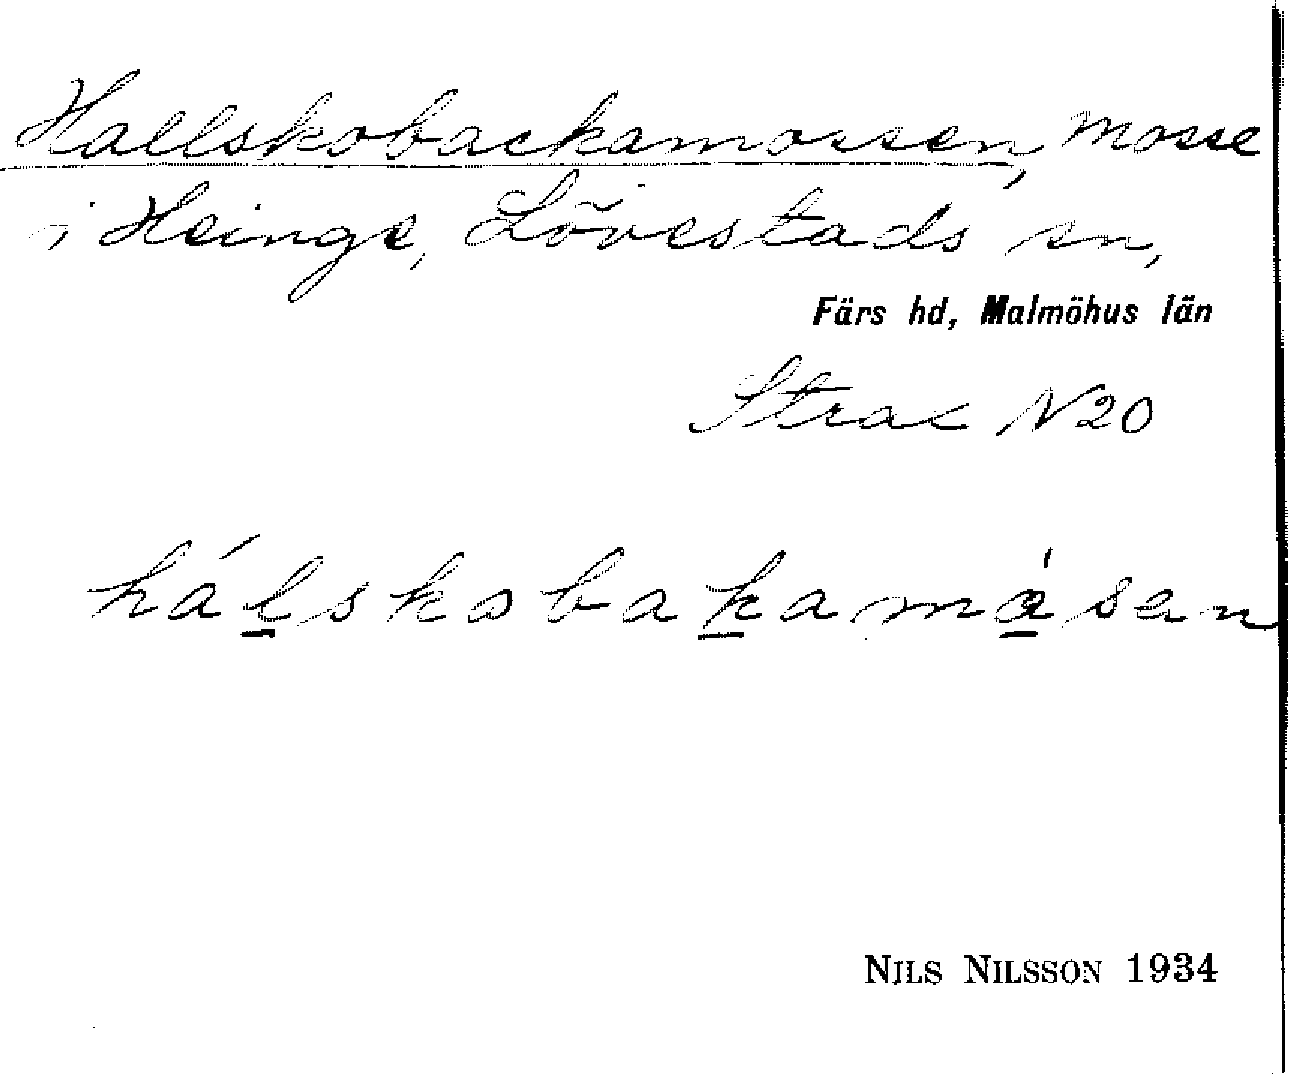 Hallskobackamossen, mosse
i Heinge, Lövestads sn,
Färs hd, Malmöhus län
Strac N20
hálskobakamåsen
NILS NILSSON 1934